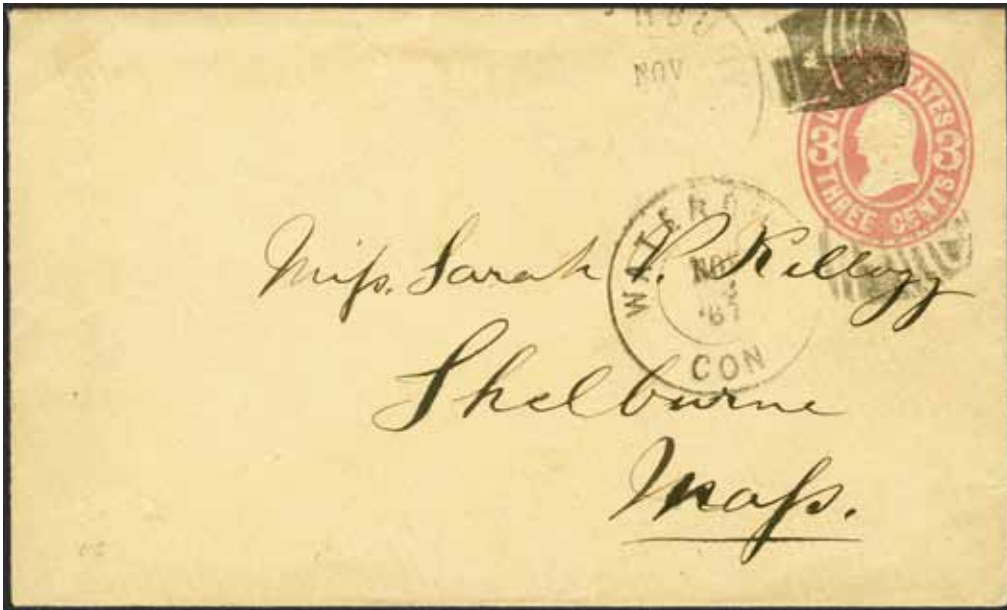 NOV
UNITED STATES
3 3
THREE CENTS
WATERBURY
NOV
2
'67
CON
Miss. Sarah P. Kellogg
Shelburne
Mass.